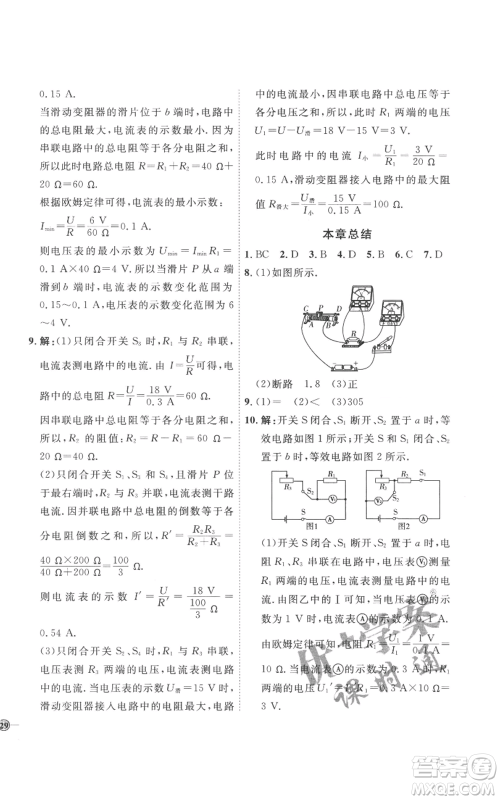 0.15 A.
当滑动变阻器的滑片位于 b 端时,电路中
的总电阻最大,电流表的示数最小.因为
串联电路中总电阻等于各部分电阻之
和,所以此时电路总电阻 R=R₁+R₂=40 Ω+
20 Ω=60 Ω.
根据欧姆定律可得,电流表的最小示数
I_min=U/R=6 V/60 Ω=0.1 A.
则电压表的最小示数为 U_min=I_min R₁=
0.1 A×40 Ω=4 V.所以当滑片从 a 端
滑动到 b 端时,电流表的示数变化范围为
0.15~0.1 A、电压表的示数变化范围为
6~4 V.
9.解:(1)只闭合开关 S₃时,R₁与 R₂串联,
电流表测电路中的电流.由 I=U/R可得,
电路中的总电阻 R=U/I=18 V/0.3 A=60 Ω.
因串联电路中总电阻等于各分电阻之
和,所以 R₂=R-R₁=60 Ω-20 Ω=
40 Ω.
(2)只闭合开关 S₁、S₂ 且滑片 P 位
于最右端时,R₂与 R₃并联,电流表测干路
电流.因并联电路中总电阻的倒数等于各
分电阻倒数之和,所以 R′=R₂R₃/(R₂+R₃)=
40 Ω×200 Ω/(40 Ω+200 Ω)=100/3 Ω.
则电流表的示数 I′=U/R′=18 V/(100/3 Ω)=
0.54 A.
(3)只闭合开关 S₁时,R₁与 R₃串联,
电压表测 R₃ 两端的电压,电流表测
电路中的电流.
当电压表的示数 U滑=15 V 时,
滑动变阻器接入电路中的电阻最大,电路
中的电流最小,因串联电路中总电压等于
各分电压之和,所以此时 R₁ 两端的电压
U₁=U-U滑=18 V-15 V=3 V.
此时电路中的电流 I小=U₁/R₁=3 V/20 Ω=
0.15 A,滑动变阻器接入电路中的最大电
阻值 R滑大=U滑/I小=15 V/0.15 A=100 Ω.
本章总结
1. BC 2. D 3. B 4. D 5. D 6. C 7. D
8. (1)如图所示.
C P D
A B
(2)断路 1.8 (3)正
9. (1)= (2)< (3)305
10.解:开关 S 闭合、S₁断开、S₂置于 a 时,等
效电路如图 1 所示;开关 S、S₁闭合,S₂
置于 b 时,等效电路如图 2 所示.
图1 图2
(1)开关 S 闭合、S₁断开、S₂置于 a 时,
R₁与 R₃串联,电压表Ⓥ₁测量
R₁ 两端的电压,电流表Ⓐ测量电路
电流.由图乙中Ⅰ可知,电压表Ⓥ₁的示
数为 1 V,电流表Ⓐ的示数为 0.1 A,
由欧姆定律可知,R₁=
10 Ω.
当电流表Ⓐ的示数为 0.3 A 时,R₁两端
的电压 U₁′=I₁′R₁=0.3 A×10 Ω=
3 V.
29